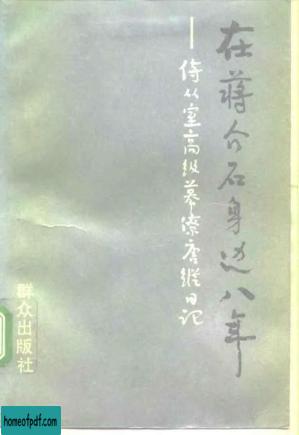 在蒋介石身边八年
——侍从室高级幕僚唐纵日记
群众出版社
homeofpdf.com